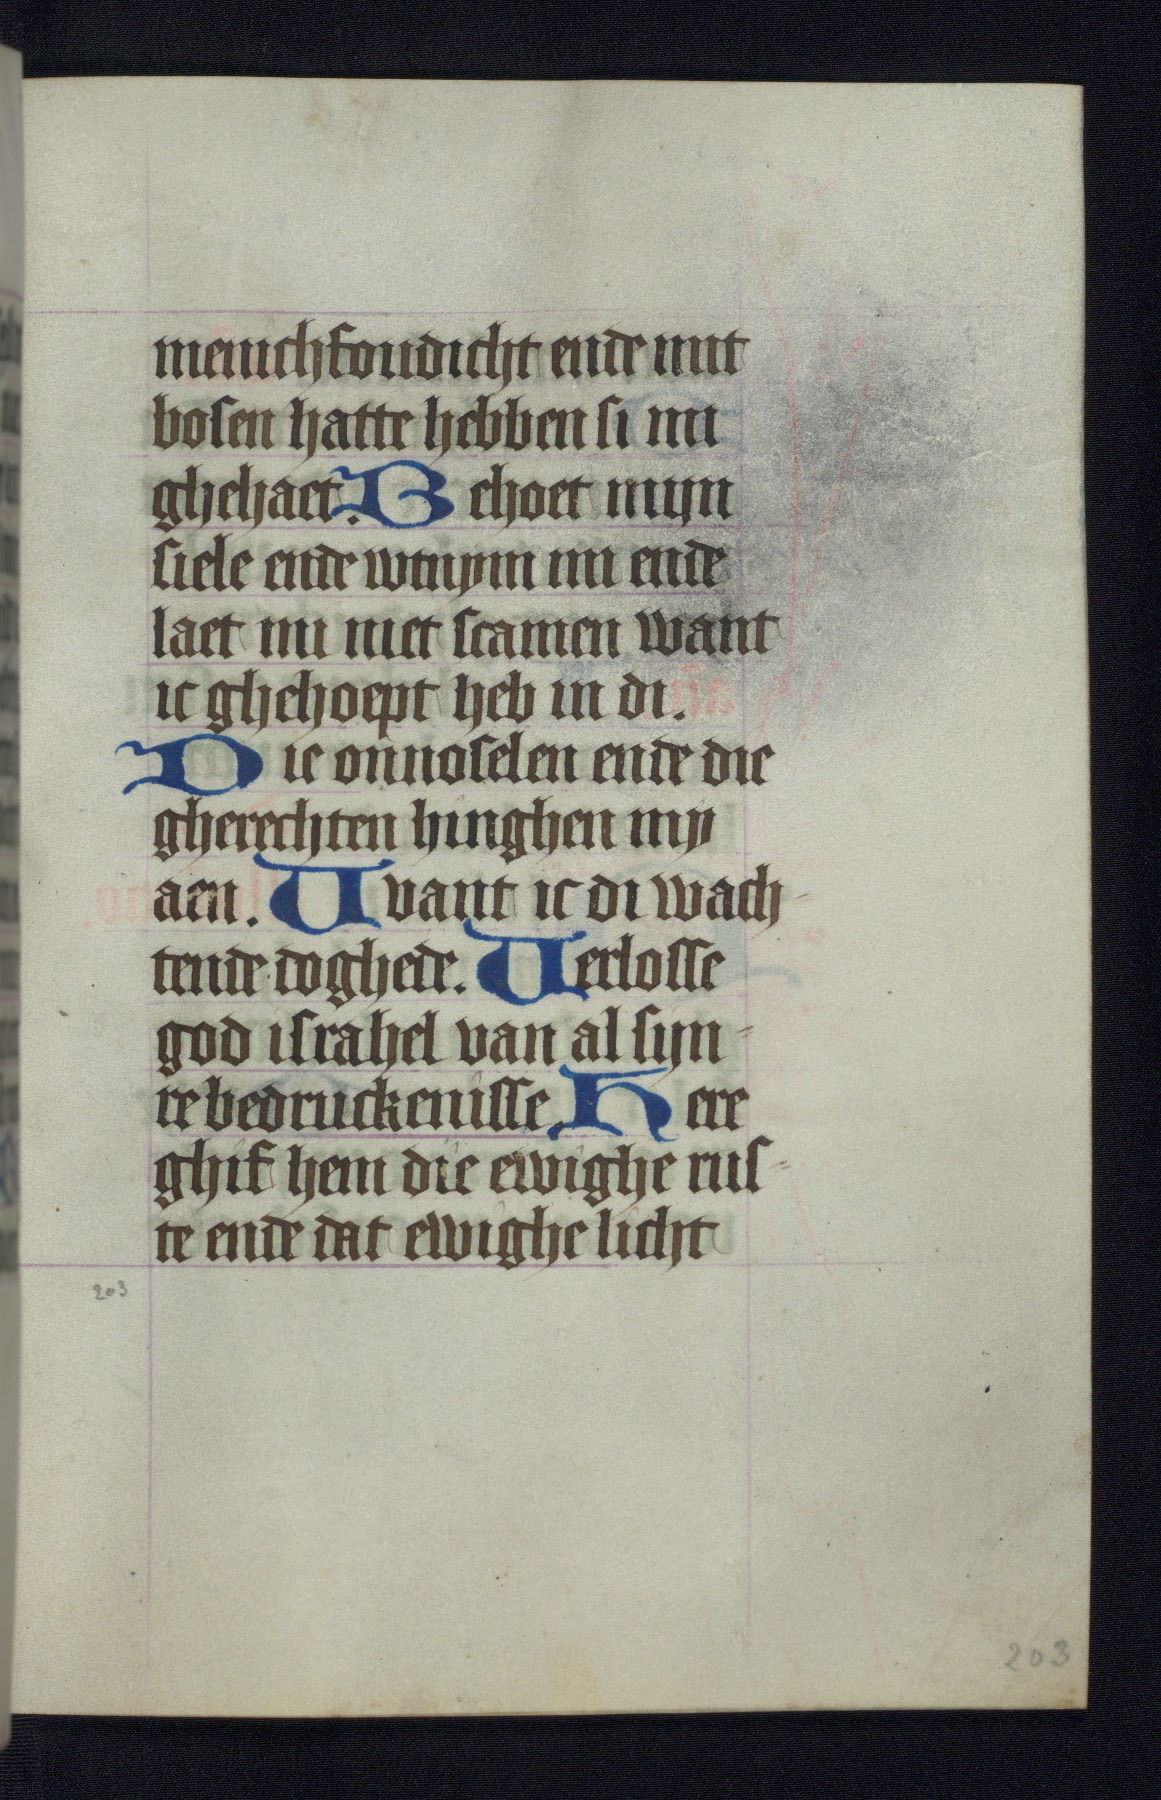 menichfoudicht ende mit
bosen hatte hebben si mi
ghehaet. Behoet mijn
siele ende wtnym mi ende
laet mi niet scamen want
ic ghehoept heb in di.
Die onnoselen ende die
gherechten hinghen my
aen. Want ic di wach-
tende doghede. Verlosse
god israhel van al sijn-
re bedruckenisse. Here
ghif hem die ewighe rus-
te ende dat ewighe licht
203
203